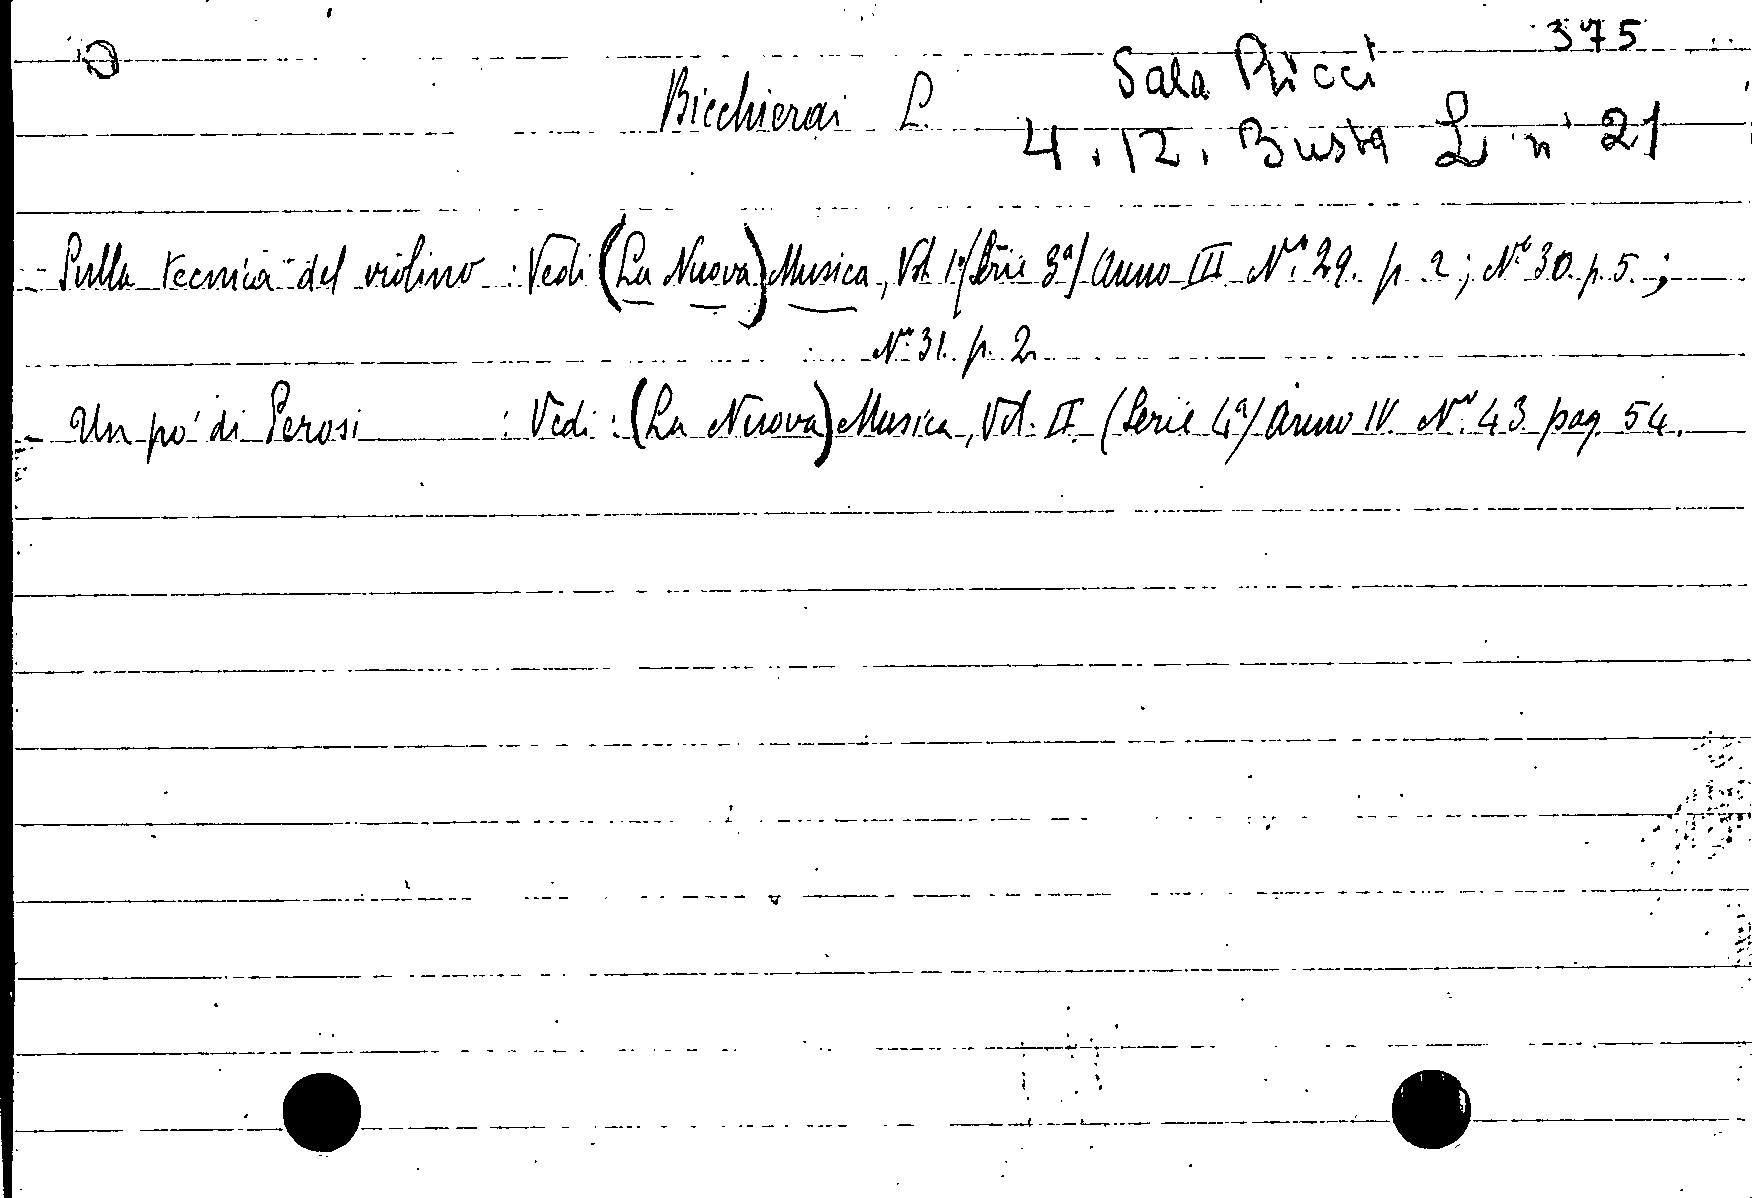 375
Bicchierai L. Sala Ricci
4.12. Busta L n° 21
- Sulla tecnica del violino : Vedi (La Nuova) Musica, Vol. 1° (Serie 3ª) Anno III Nº. 29. p. 2; Nº 30. p. 5. ;
Nº. 31. p. 2
- Un po' di Perosi : Vedi : (La Nuova) Musica, Vol. II. (Serie 4ª) Anno IV. Nº. 43. pag. 54.